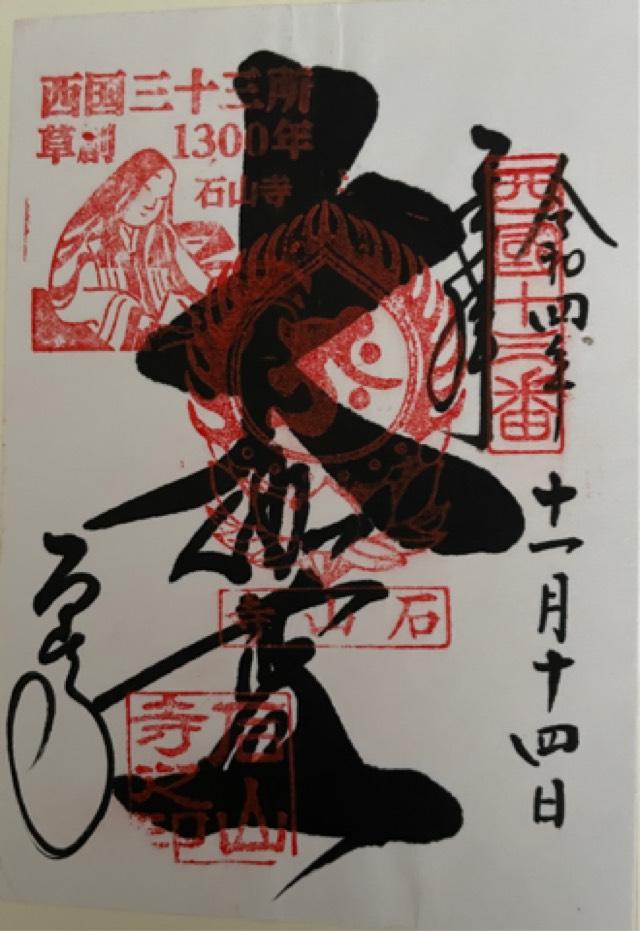 西国三十三所
草創 1300年
石山寺
西國十三番
令和四年 十一月十四日
奉拝
大伽藍
石山寺
石山寺之印
石山寺